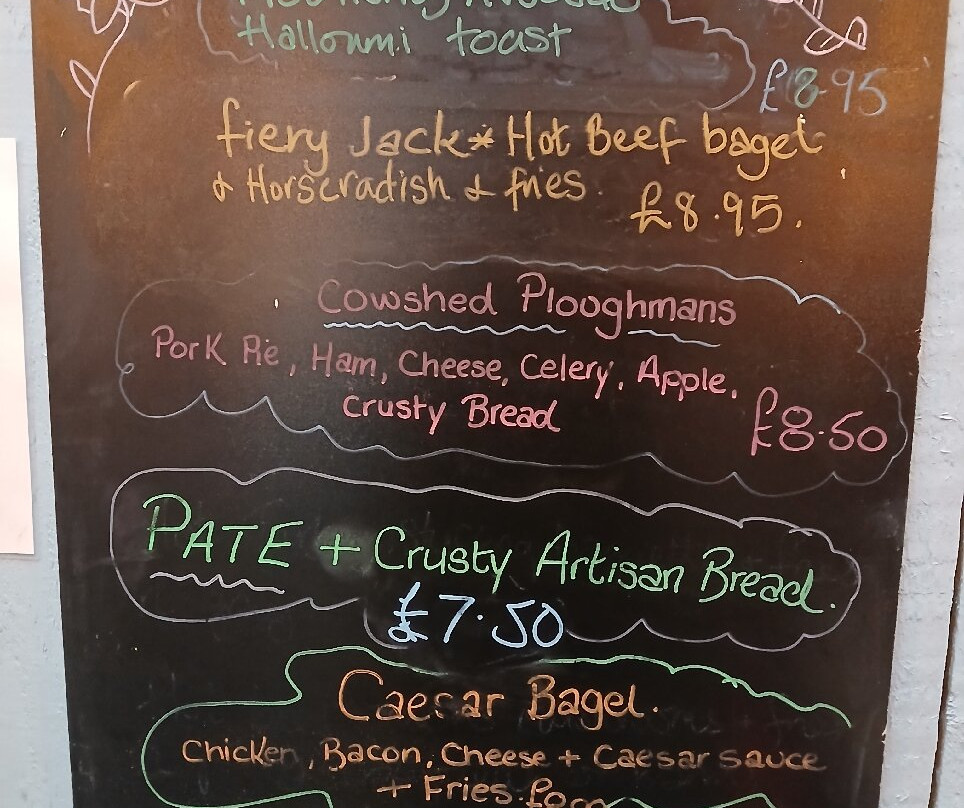 Halloumi toast
£8.95
fiery Jack * Hot Beef bagel
& Horseradish & fries.
£8.95.
Cowshed Ploughmans
Pork Pie, Ham, Cheese, Celery, Apple,
Crusty Bread
£8.50
PATE + Crusty Artisan Bread.
£7.50
Caesar Bagel.
Chicken, Bacon, Cheese + Caesar sauce
+ Fries.